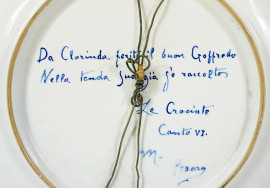 Da Clorinda ferito il buon Goffredo
Nella tenda sua già s'è raccolto
Le Crociate
Canto VI.